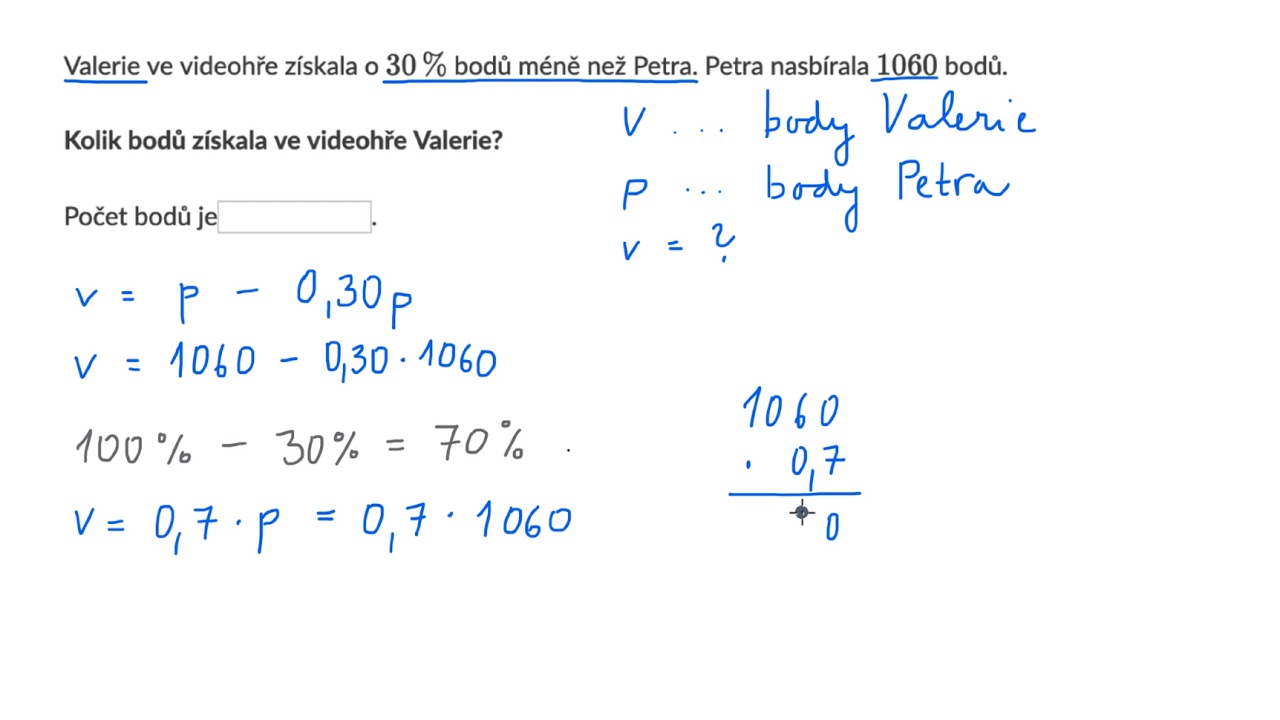 Valerie ve videohře získala o 30 % bodů méně než Petra. Petra nasbírala 1060 bodů.
Kolik bodů získala ve videohře Valerie?
Počet bodů je .
v ... body Valerie
p ... body Petra
v = ?
v = p - 0,30p
v = 1060 - 0,30 · 1060
100 % - 30 % = 70 %
v = 0,7 · p = 0,7 · 1060
1060
· 0,7
0